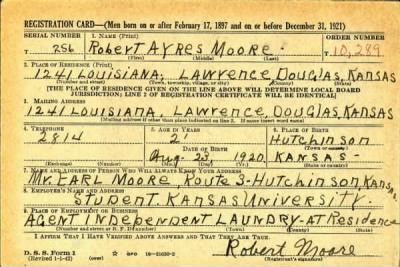 REGISTRATION CARD—(Men born on or after February 17, 1897 and on or before December 31, 1921)
SERIAL NUMBER 1. NAME (Print) ORDER NUMBER
T 256 Robert AYRES MOORE T 10,289
(First) (Middle) (Last)
2. PLACE OF RESIDENCE (Print)
1241 LOUISIANA; LAWRENCE DOUGLAS, KANSAS
(Number and street) (Town, township, village, or city) (County) (State)
[THE PLACE OF RESIDENCE GIVEN ON THE LINE ABOVE WILL DETERMINE LOCAL BOARD
JURISDICTION; LINE 2 OF REGISTRATION CERTIFICATE WILL BE IDENTICAL]
3. MAILING ADDRESS
1241 LOUISIANA, LAWRENCE, DOUGLAS, KANSAS
[Mailing address if other than place indicated on line 2. If same insert word same]
4. TELEPHONE 5. AGE IN YEARS 6. PLACE OF BIRTH
2814 21 Hutchinson
DATE OF BIRTH (Town or county)
Aug. 23 1920 KANSAS-
(Exchange) (Number) (Mo.) (Day) (Yr.) (State or country)
7. NAME AND ADDRESS OF PERSON WHO WILL ALWAYS KNOW YOUR ADDRESS
Mr. EARL MOORE, ROUTE 3-HUTCHINSON, KANSAS
8. EMPLOYER'S NAME AND ADDRESS
STUDENT, KANSAS UNIVERSITY.
9. PLACE OF EMPLOYMENT OR BUSINESS
AGENT INDEPENDENT LAUNDRY-AT Residence
(Number and street or R. F. D. number) (Town) (County) (State)
I AFFIRM THAT I HAVE VERIFIED ABOVE ANSWERS AND THAT THEY ARE TRUE.
Robert Moore
D. S. S. Form 1
(Revised 1-1-42) (over) GPO 16—21630-2 (Registrant's signature)